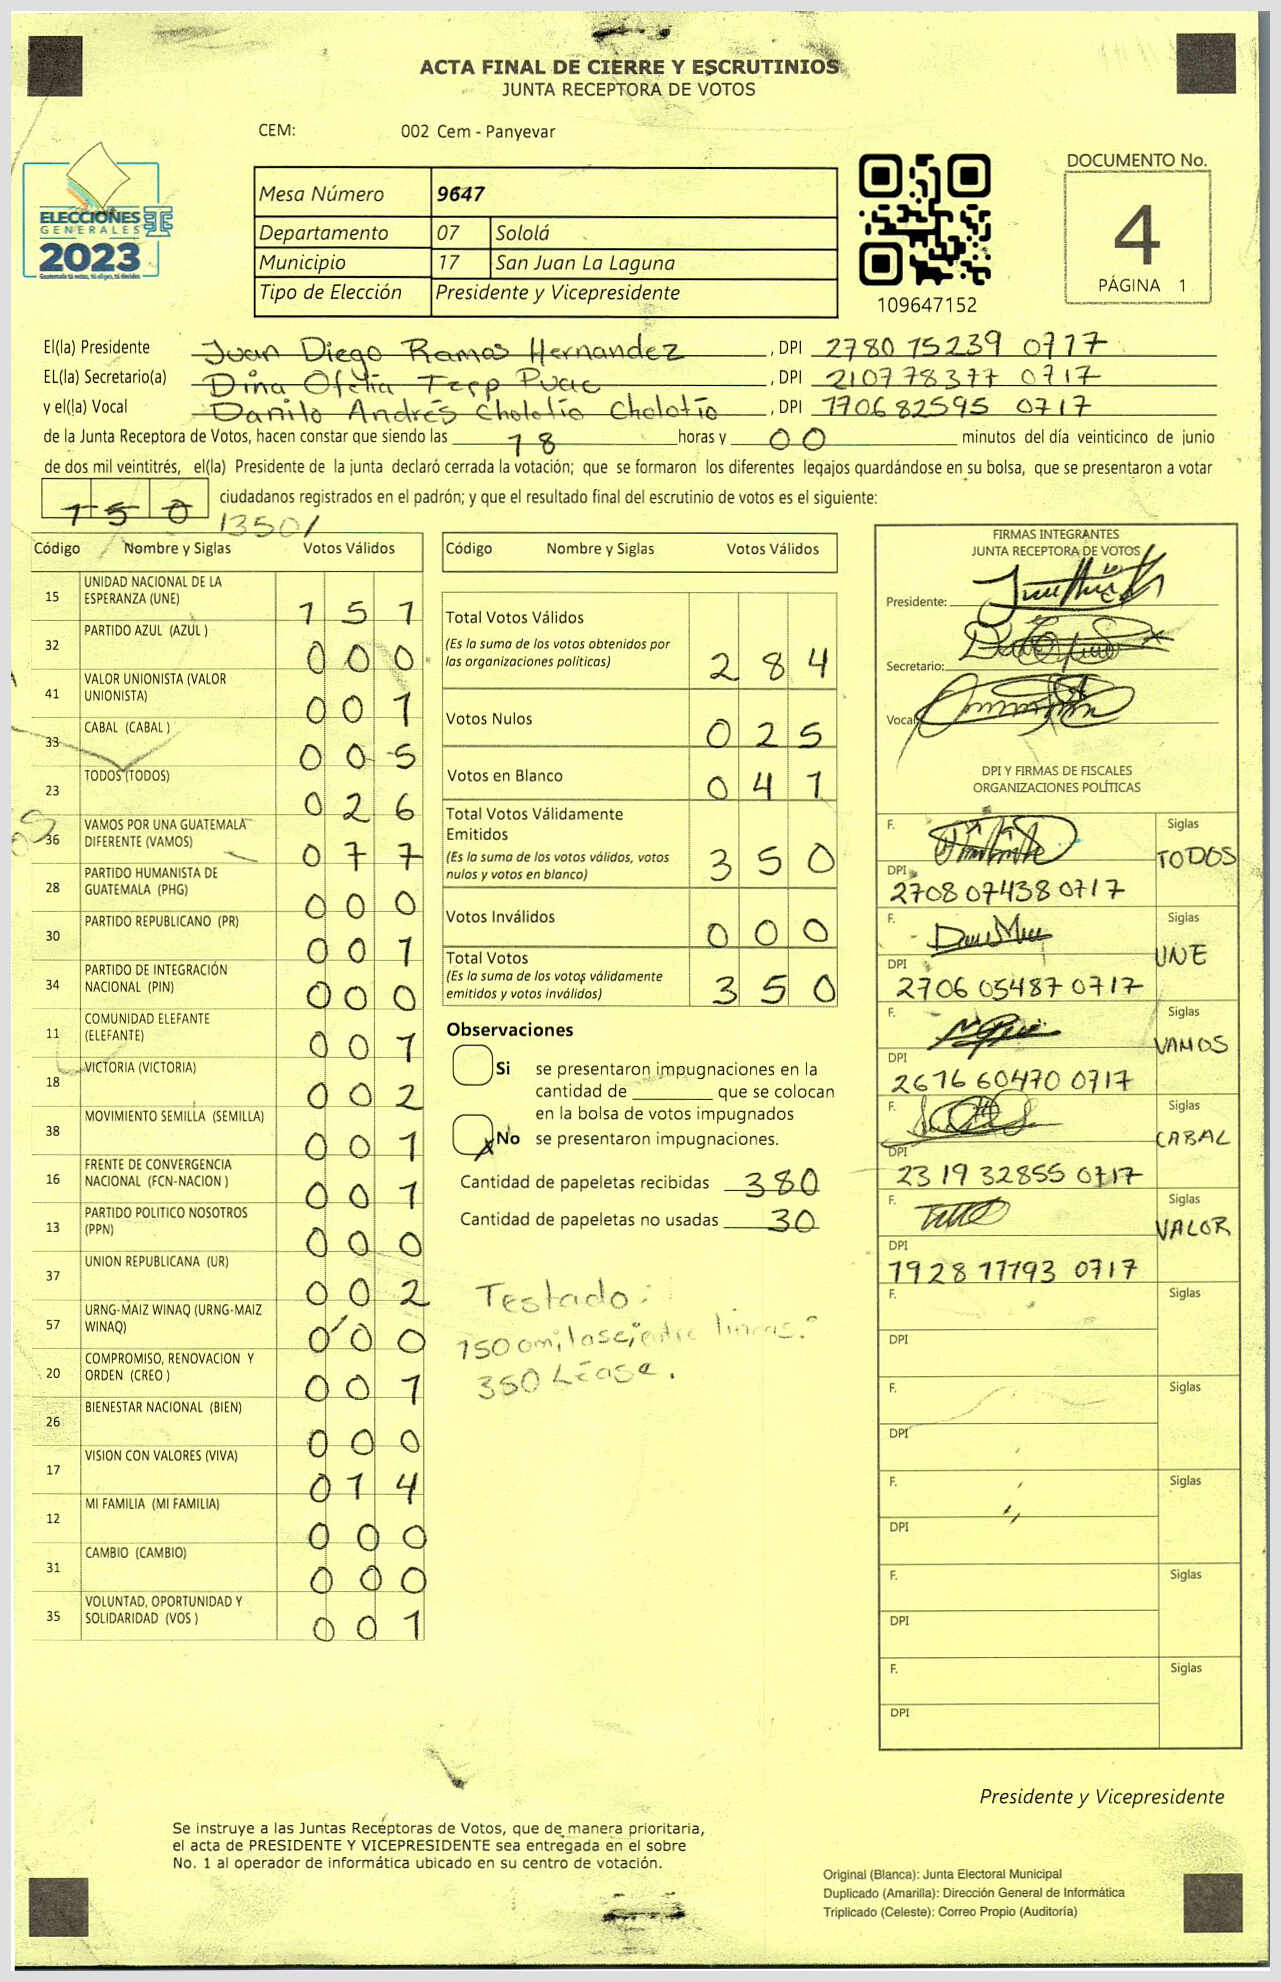 ACTA FINAL DE CIERRE Y ESCRUTINIOS
JUNTA RECEPTORA DE VOTOS
CEM: 002 Cem - Panyevar
ELECCIONES
GENERALES
2023
Guatemala tú votas, tú eliges, tú decides
Mesa Número 9647
Departamento 07 Sololá
Municipio 17 San Juan La Laguna
Tipo de Elección Presidente y Vicepresidente
109647152
DOCUMENTO No.
4
PÁGINA 1
El(la) Presidente Juan Diego Ramos Hernandez , DPI 2780 15239 0717
EL(la) Secretario(a) Dina Ofelia , DPI 210778377 0717
y el(la) Vocal Danilo Andrés Cholotío Cholotío , DPI 170682595 0717
de la Junta Receptora de Votos, hacen constar que siendo las 18 horas y 00 minutos del día veinticinco de junio
de dos mil veintitrés, el(la) Presidente de la junta declaró cerrada la votación; que se formaron los diferentes legajos guardándose en su bolsa, que se presentaron a votar
150 ciudadanos registrados en el padrón; y que el resultado final del escrutinio de votos es el siguiente:
1350/
Código Nombre y Siglas Votos Válidos
15 UNIDAD NACIONAL DE LA ESPERANZA (UNE) 151
32 PARTIDO AZUL (AZUL ) 000
41 VALOR UNIONISTA (VALOR UNIONISTA) 001
33 CABAL (CABAL ) 005
23 TODOS (TODOS) 026
36 VAMOS POR UNA GUATEMALA DIFERENTE (VAMOS) 077
28 PARTIDO HUMANISTA DE GUATEMALA (PHG) 000
30 PARTIDO REPUBLICANO (PR) 001
34 PARTIDO DE INTEGRACIÓN NACIONAL (PIN) 000
11 COMUNIDAD ELEFANTE (ELEFANTE) 001
18 VICTORIA (VICTORIA) 002
38 MOVIMIENTO SEMILLA (SEMILLA) 001
16 FRENTE DE CONVERGENCIA NACIONAL (FCN-NACION ) 001
13 PARTIDO POLITICO NOSOTROS (PPN) 000
37 UNION REPUBLICANA (UR) 002
57 URNG-MAIZ WINAQ (URNG-MAIZ WINAQ) 000
20 COMPROMISO, RENOVACION Y ORDEN (CREO ) 001
26 BIENESTAR NACIONAL (BIEN) 000
17 VISION CON VALORES (VIVA) 014
12 MI FAMILIA (MI FAMILIA) 000
31 CAMBIO (CAMBIO) 000
35 VOLUNTAD, OPORTUNIDAD Y SOLIDARIDAD (VOS ) 001
Código Nombre y Siglas Votos Válidos
Total Votos Válidos
(Es la suma de los votos obtenidos por
las organizaciones políticas) 284
Votos Nulos 025
Votos en Blanco 041
Total Votos Válidamente
Emitidos
(Es la suma de los votos válidos, votos
nulos y votos en blanco) 350
Votos Inválidos 000
Total Votos
(Es la suma de los votos válidamente
emitidos y votos inválidos) 350
Observaciones
Si se presentaron impugnaciones en la
cantidad de ________ que se colocan
en la bolsa de votos impugnados
x No se presentaron impugnaciones.
Cantidad de papeletas recibidas 380
Cantidad de papeletas no usadas 30
Testado:
150 omitase; entre lineas:
350 Léase.
FIRMAS INTEGRANTES
JUNTA RECEPTORA DE VOTOS
Presidente:
Secretario:
Vocal
DPI Y FIRMAS DE FISCALES
ORGANIZACIONES POLÍTICAS
F. Siglas TODOS
DPI 2708 07438 0717
F. Siglas UNE
DPI 2706 05487 0717
F. Siglas VAMOS
DPI 2616 60470 0717
F. Siglas CABAL
DPI 2319 32855 0717
F. Siglas VALOR
DPI 1928 11193 0717
F. Siglas
DPI
F. Siglas
DPI
F. Siglas
DPI
F. Siglas
DPI
F. Siglas
DPI
Presidente y Vicepresidente
Se instruye a las Juntas Receptoras de Votos, que de manera prioritaria,
el acta de PRESIDENTE Y VICEPRESIDENTE sea entregada en el sobre
No. 1 al operador de informática ubicado en su centro de votación.
Original (Blanca): Junta Electoral Municipal
Duplicado (Amarilla): Dirección General de Informática
Triplicado (Celeste): Correo Propio (Auditoría)